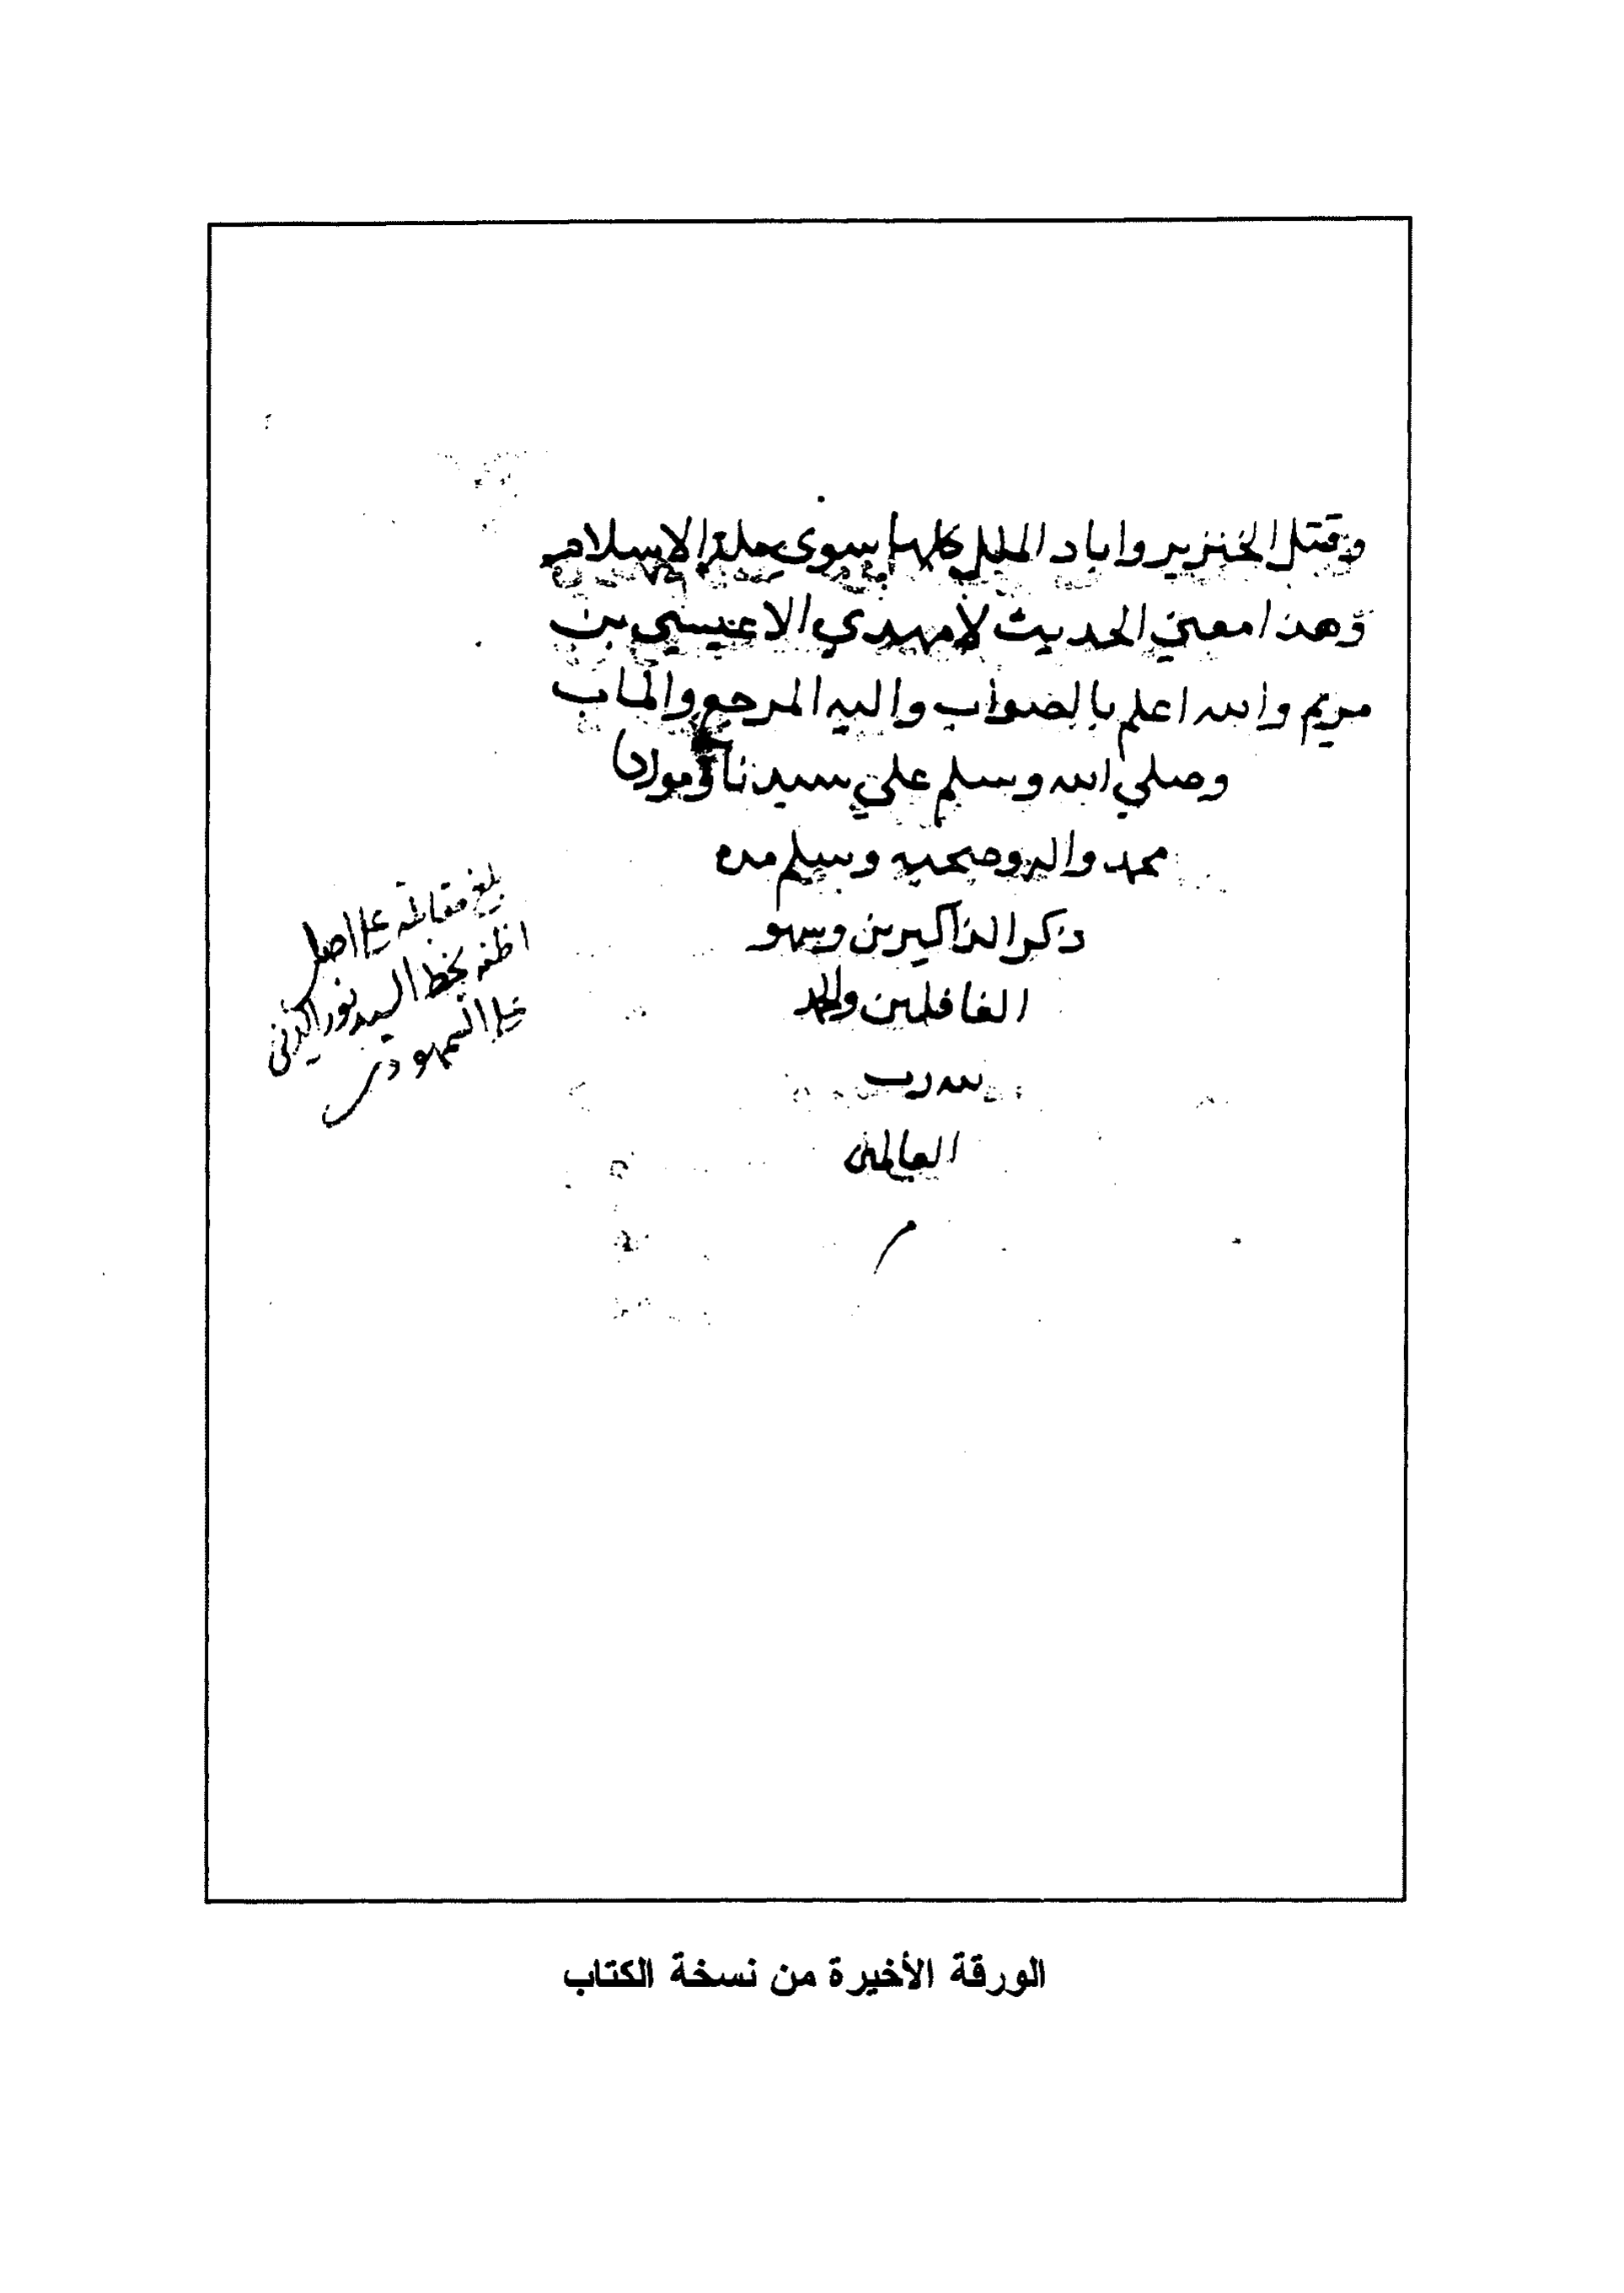 وقتل الخنزير واباد الملل كلها سوى ملة الاسلام
وهذا معني الحديث لا مهدي الا عيسي بن
مريم والله اعلم بالصواب واليه المرجع والماب
وصلي الله وسلم علي سيدنا ومولانا
محمد واله وصحبه وسلم مده
ذكر الذاكرين وسهو
الغافلين والحمد
لله رب
العالمين
بلغ مقابلة على اصل
اظنه بخط السيد نور الدين
علي السمهودي
الورقة الأخيرة من نسخة الكتاب